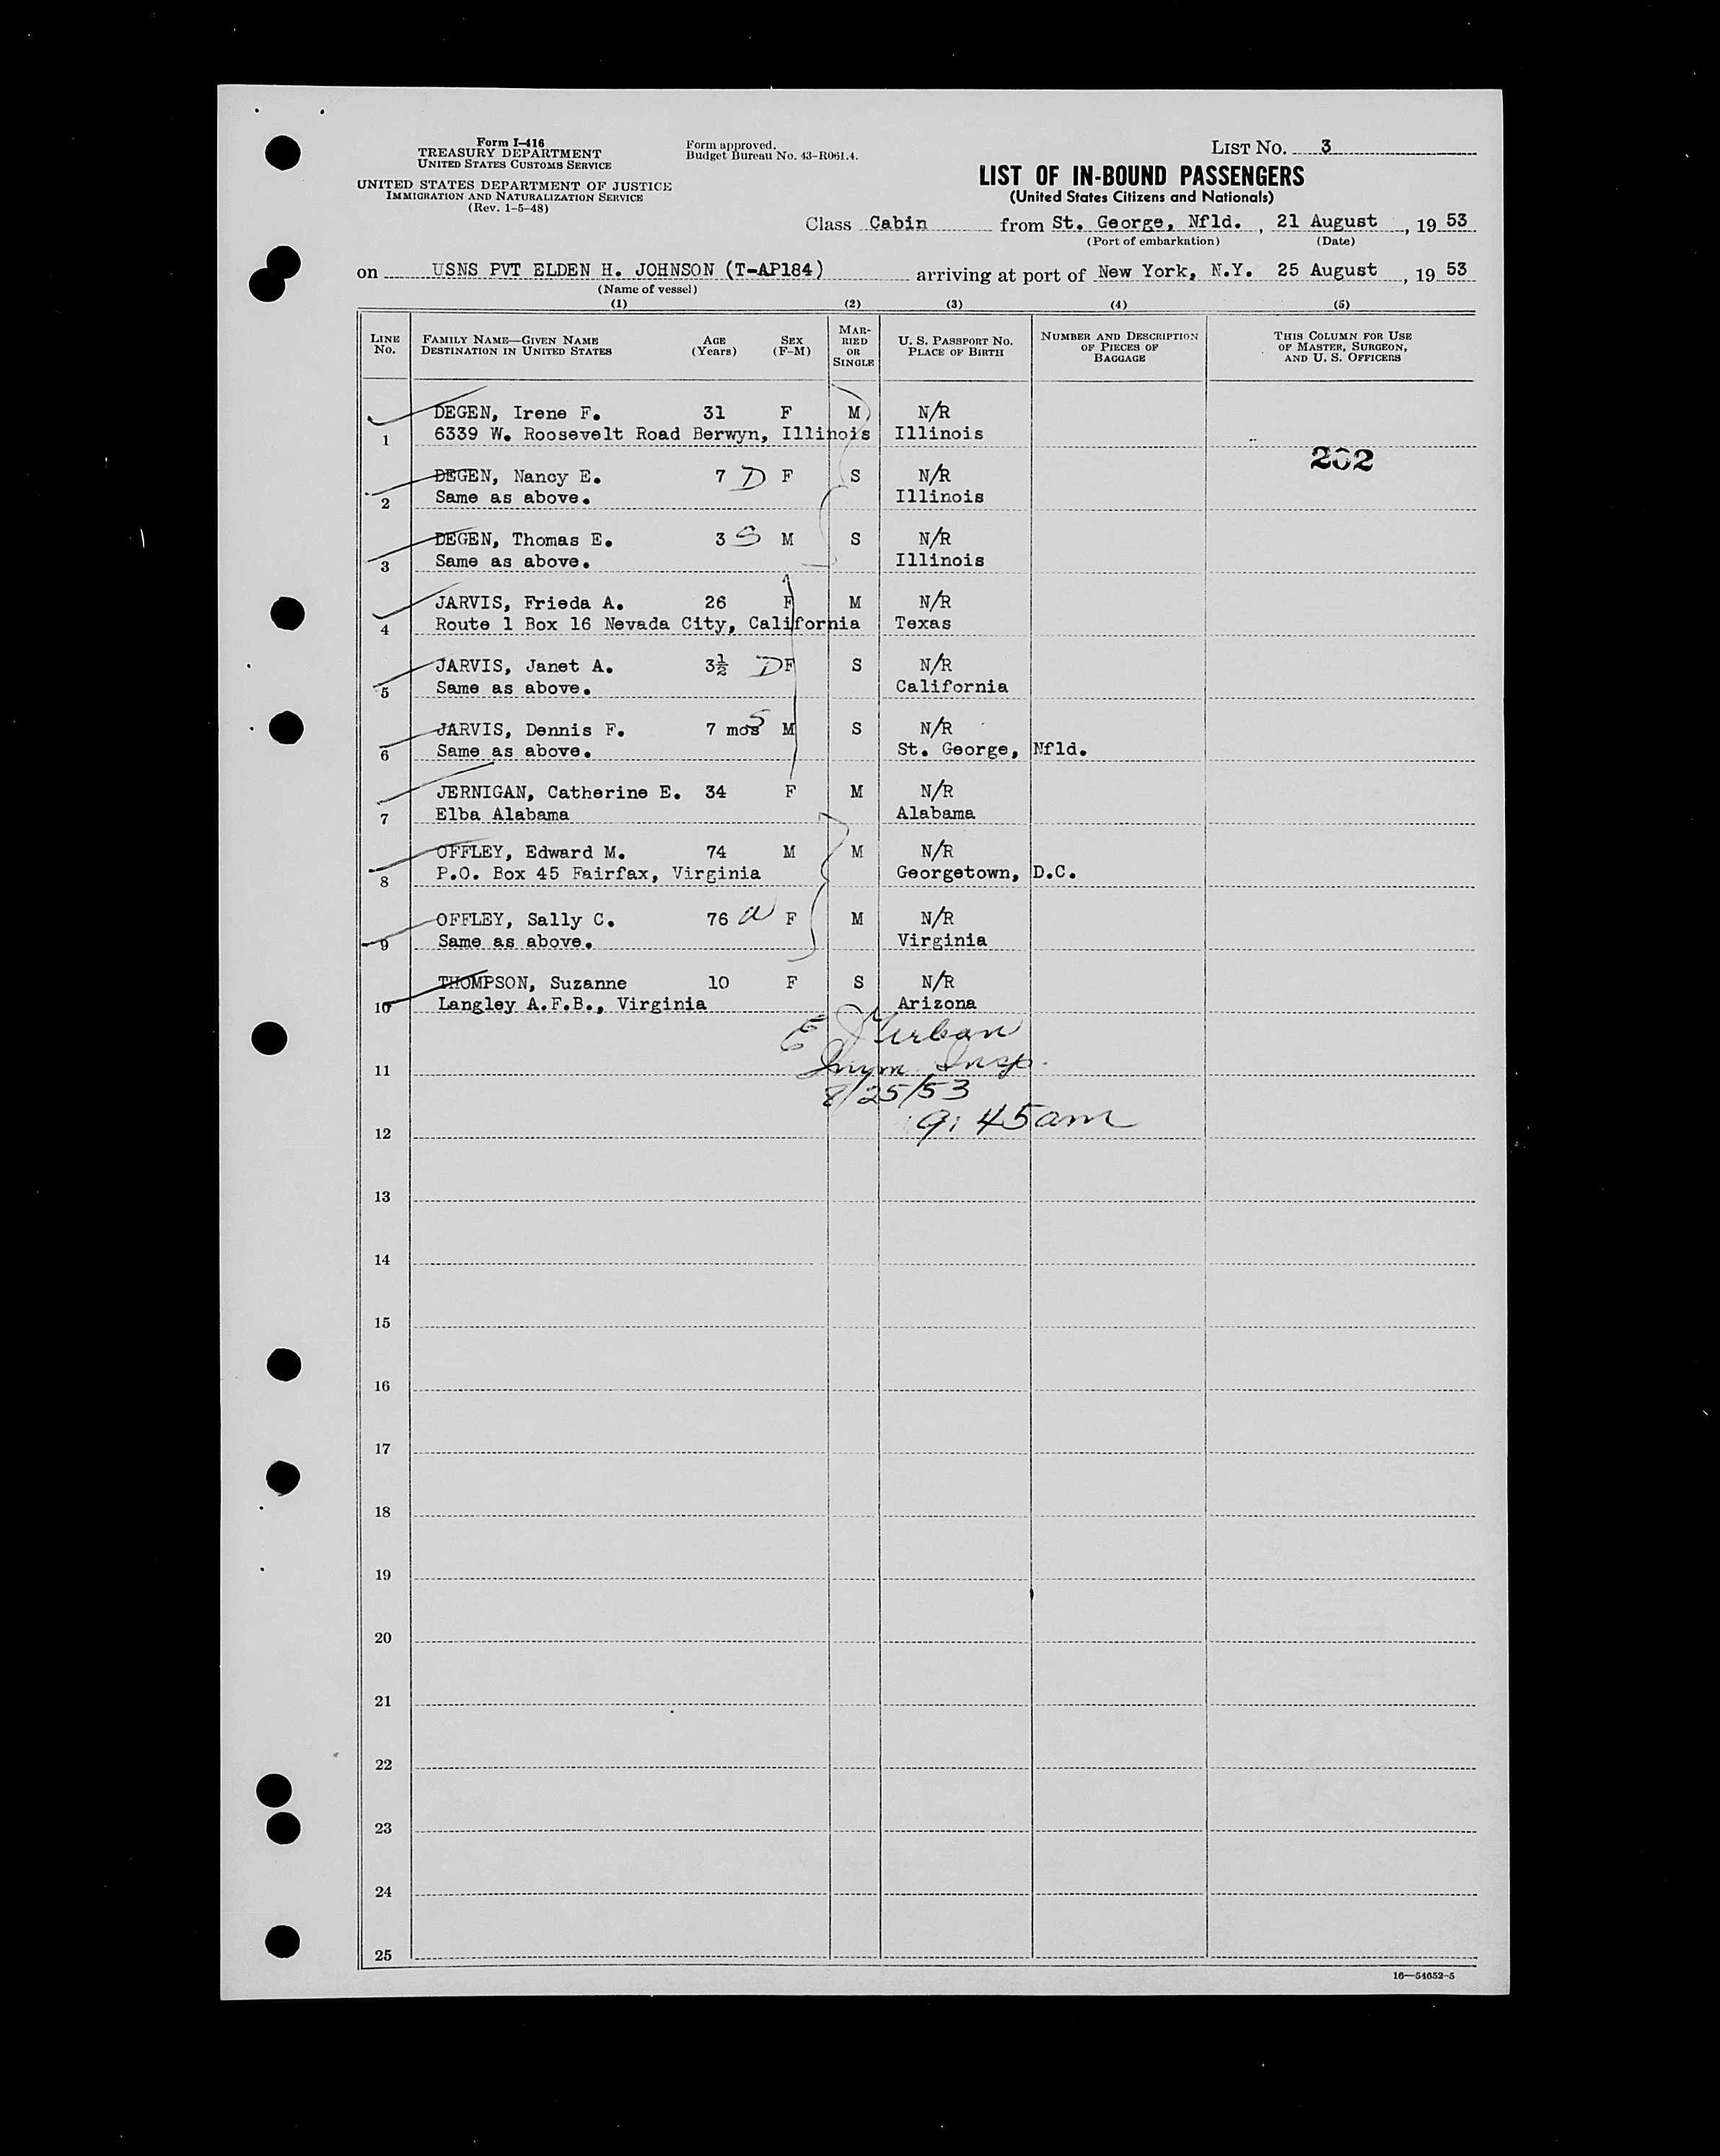 Form I-416
TREASURY DEPARTMENT
UNITED STATES CUSTOMS SERVICE
UNITED STATES DEPARTMENT OF JUSTICE
IMMIGRATION AND NATURALIZATION SERVICE
(Rev. 1-5-48)
Form approved.
Budget Bureau No. 43-R061.4.
LIST NO. 3
LIST OF IN-BOUND PASSENGERS
(United States Citizens and Nationals)
Class Cabin from St. George, Nfld., 21 August, 19 53
(Port of embarkation) (Date)
on USNS PVT ELDEN H. JOHNSON (T-AP184) arriving at port of New York, N.Y. 25 August, 19 53
(Name of vessel)
(1) (2) (3) (4) (5)
LINE NO. FAMILY NAME—GIVEN NAME DESTINATION IN UNITED STATES AGE (Years) SEX (F-M) MARRIED OR SINGLE U. S. PASSPORT NO. PLACE OF BIRTH NUMBER AND DESCRIPTION OF PIECES OF BAGGAGE THIS COLUMN FOR USE OF MASTER, SURGEON, AND U. S. OFFICERS
DEGEN, Irene F. 31 F M N/R
1 6339 W. Roosevelt Road Berwyn, Illinois Illinois
202
DEGEN, Nancy E. 7 D F S N/R
2 Same as above. Illinois
DEGEN, Thomas E. 3 S M S N/R
3 Same as above. Illinois
JARVIS, Frieda A. 26 F M N/R
4 Route 1 Box 16 Nevada City, California Texas
JARVIS, Janet A. 3½ D F S N/R
5 Same as above. California
JARVIS, Dennis F. 7 mos S M S N/R
6 Same as above. St. George, Nfld.
JERNIGAN, Catherine E. 34 F M N/R
7 Elba Alabama Alabama
OFFLEY, Edward M. 74 M M N/R
8 P.O. Box 45 Fairfax, Virginia Georgetown, D.C.
OFFLEY, Sally C. 76 F M N/R
9 Same as above. Virginia
THOMPSON, Suzanne 10 F S N/R
10 Langley A.F.B., Virginia Arizona
11 Insp.
8/25/53
12 9:45am
13
14
15
16
17
18
19
20
21
22
23
24
25
16—54652-5